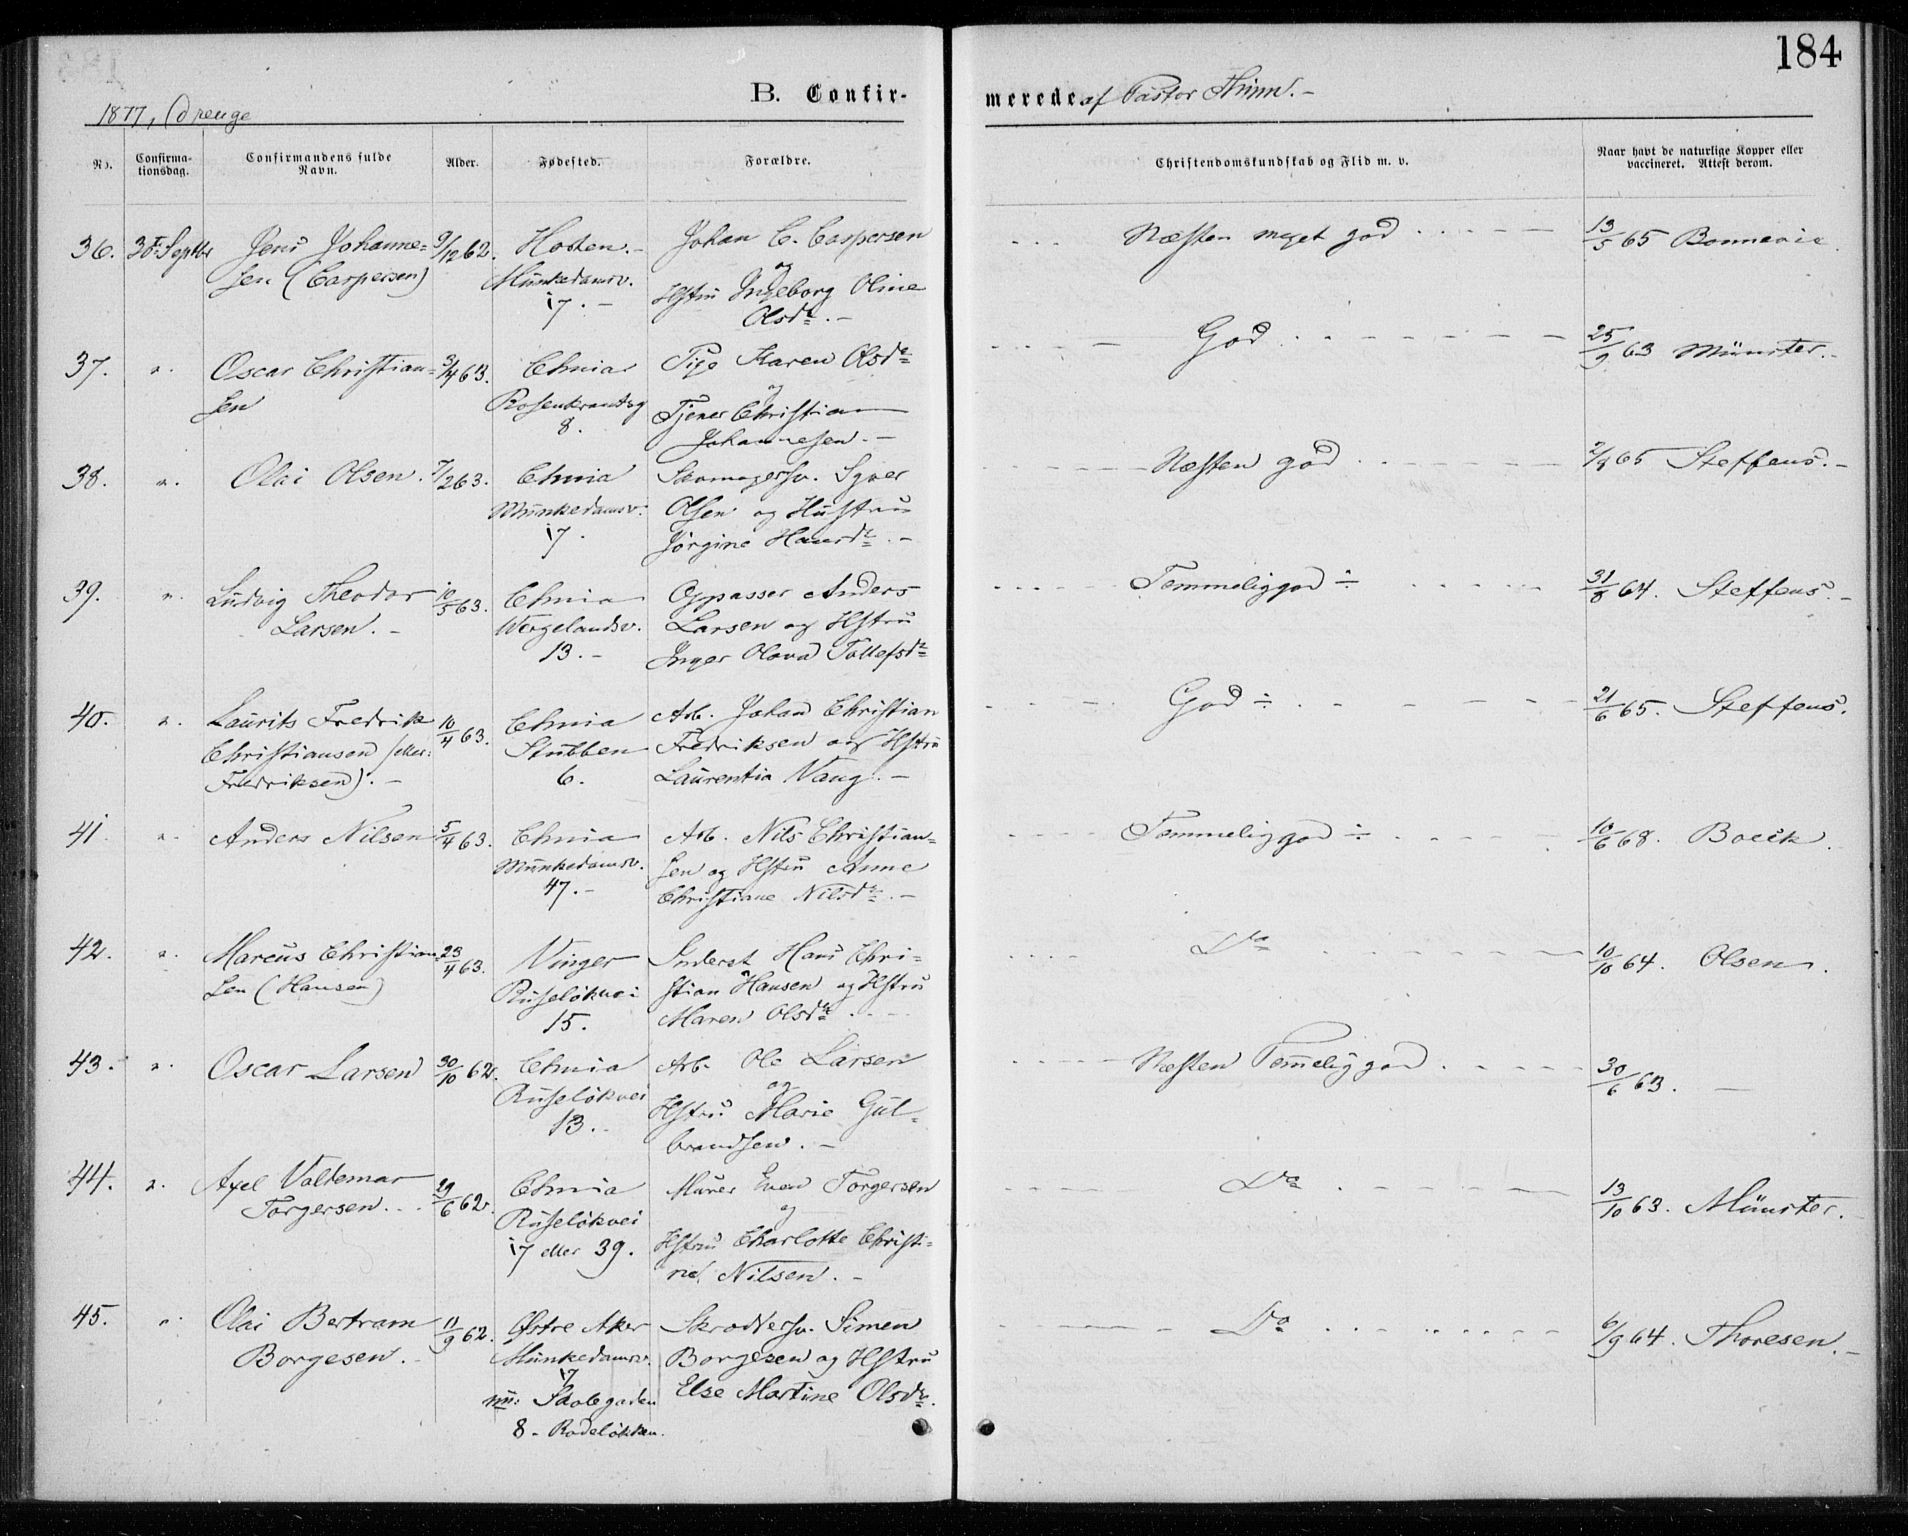 184
1877, Drenge
B. Confir-
merede af Pastor Thinn.-
No.
Confirma-
tionsdag.
Confirmandens fulde
Navn.
Alder.
Fødested.
Forældre.
Christendomskundskab og Flid m. v.
Naar havt de naturlige Kopper eller
vaccineret. Attest derom.
36. 30 Septbr Jens Johanne- 9/12 62. Holten.- Johan C. Caspersen
sen (Caspersen) Munkedamsv. og
17.- Hstru Ingeborg Oline
Olsdr.-
Næsten meget god 13/5 65 Bonnevie.
37. ". Oscar Christian- 3/4 63. Chnia Pige Karen Olsdr
sen Rosenkrantzg og
8. Tjener Christian
Johannesen.-
God 25/9 63 Münster.-
38. ". Olai Olsen. 7/2 63. Chnia Skomagersv. Syver
Munkedamsv. Olsen og Hustru
17. Jørgine Hansdr.-
Næsten god 2/9 65 Steffens.-
39. ". Ludvig Theodor 10/5 63. Chnia Oppasser Anders
Larsen.- Wergelandsv. Larsen og Hstru
13.- Inger Olava Tollefsdr
Temmelig god ÷ 31/8 64. Steffens.-
40. ". Laurits Fredrik 10/4 63. Chnia Arb. Johan Christian
Christiansen (eller: Stubben Fredriksen og Hstru
Fredriksen).- 6. Laurentia Vang.-
God ÷ 21/6 65. Steffens.
41 ". Anders Nilsen 5/4 63. Chnia Arb. Nils Christian-
Munkedamsv. sen og Hstru Anne
47.- Christiane Nilsdr.-
Temmelig god ÷ 10/6 68. Boeck.
42. ". Marcus Christian 23/4 63. Vinger Inderst Hans Chri-
sen (Hansen) Ruseløkvei stian Hansen og Hstru
15. Maren Olsdr.
Do 10/10 64. Olsen.
43. ". Oscar Larsen 30/10 62. Chnia Arb. Ole Larsen
Ruseløkvei og
13. Hstru Marie Gul-
brandsen.-
Næsten Temelig god 30/6 63. -
44. ". Axel Valdemar 29/6 62. Chnia Murer Even Torgersen
Torgersen. Ruseløkvei og
17 eller 39. Hstru Charlotte Christi-
ne Nilsen.-
Do 13/10 63. Münster.
45. ". Olai Bertram 11/9 62. Østre Aker Skrædersv. Simen
Borgesen. Munkedamsv. Borgesen og Hstru
17 Else Martine Olsdr.
nu: Skolegaden
8 - Rodeløkken.
Do 6/9 64. Thoresen.-